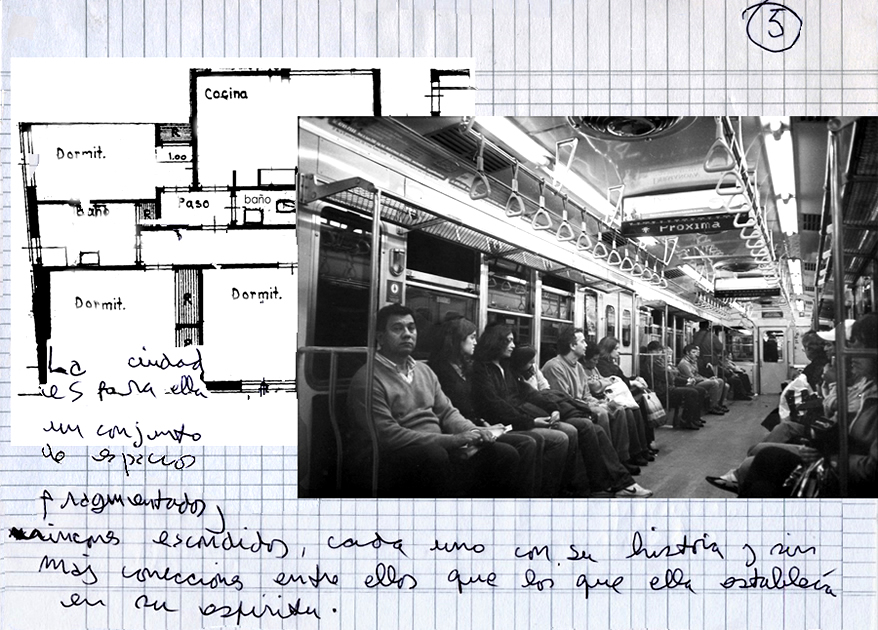 5
Cocina
Dormit.
R
1.00
Baño
R
Paso
baño
Dormit.
R
Dormit.
R
Próxima
La ciudad
es para ella
un conjunto
de espacios
fragmentados,
rincones escondidos, cada uno con su historia y sin
más conecciones entre ellos que los que ella establecía
en su espíritu.